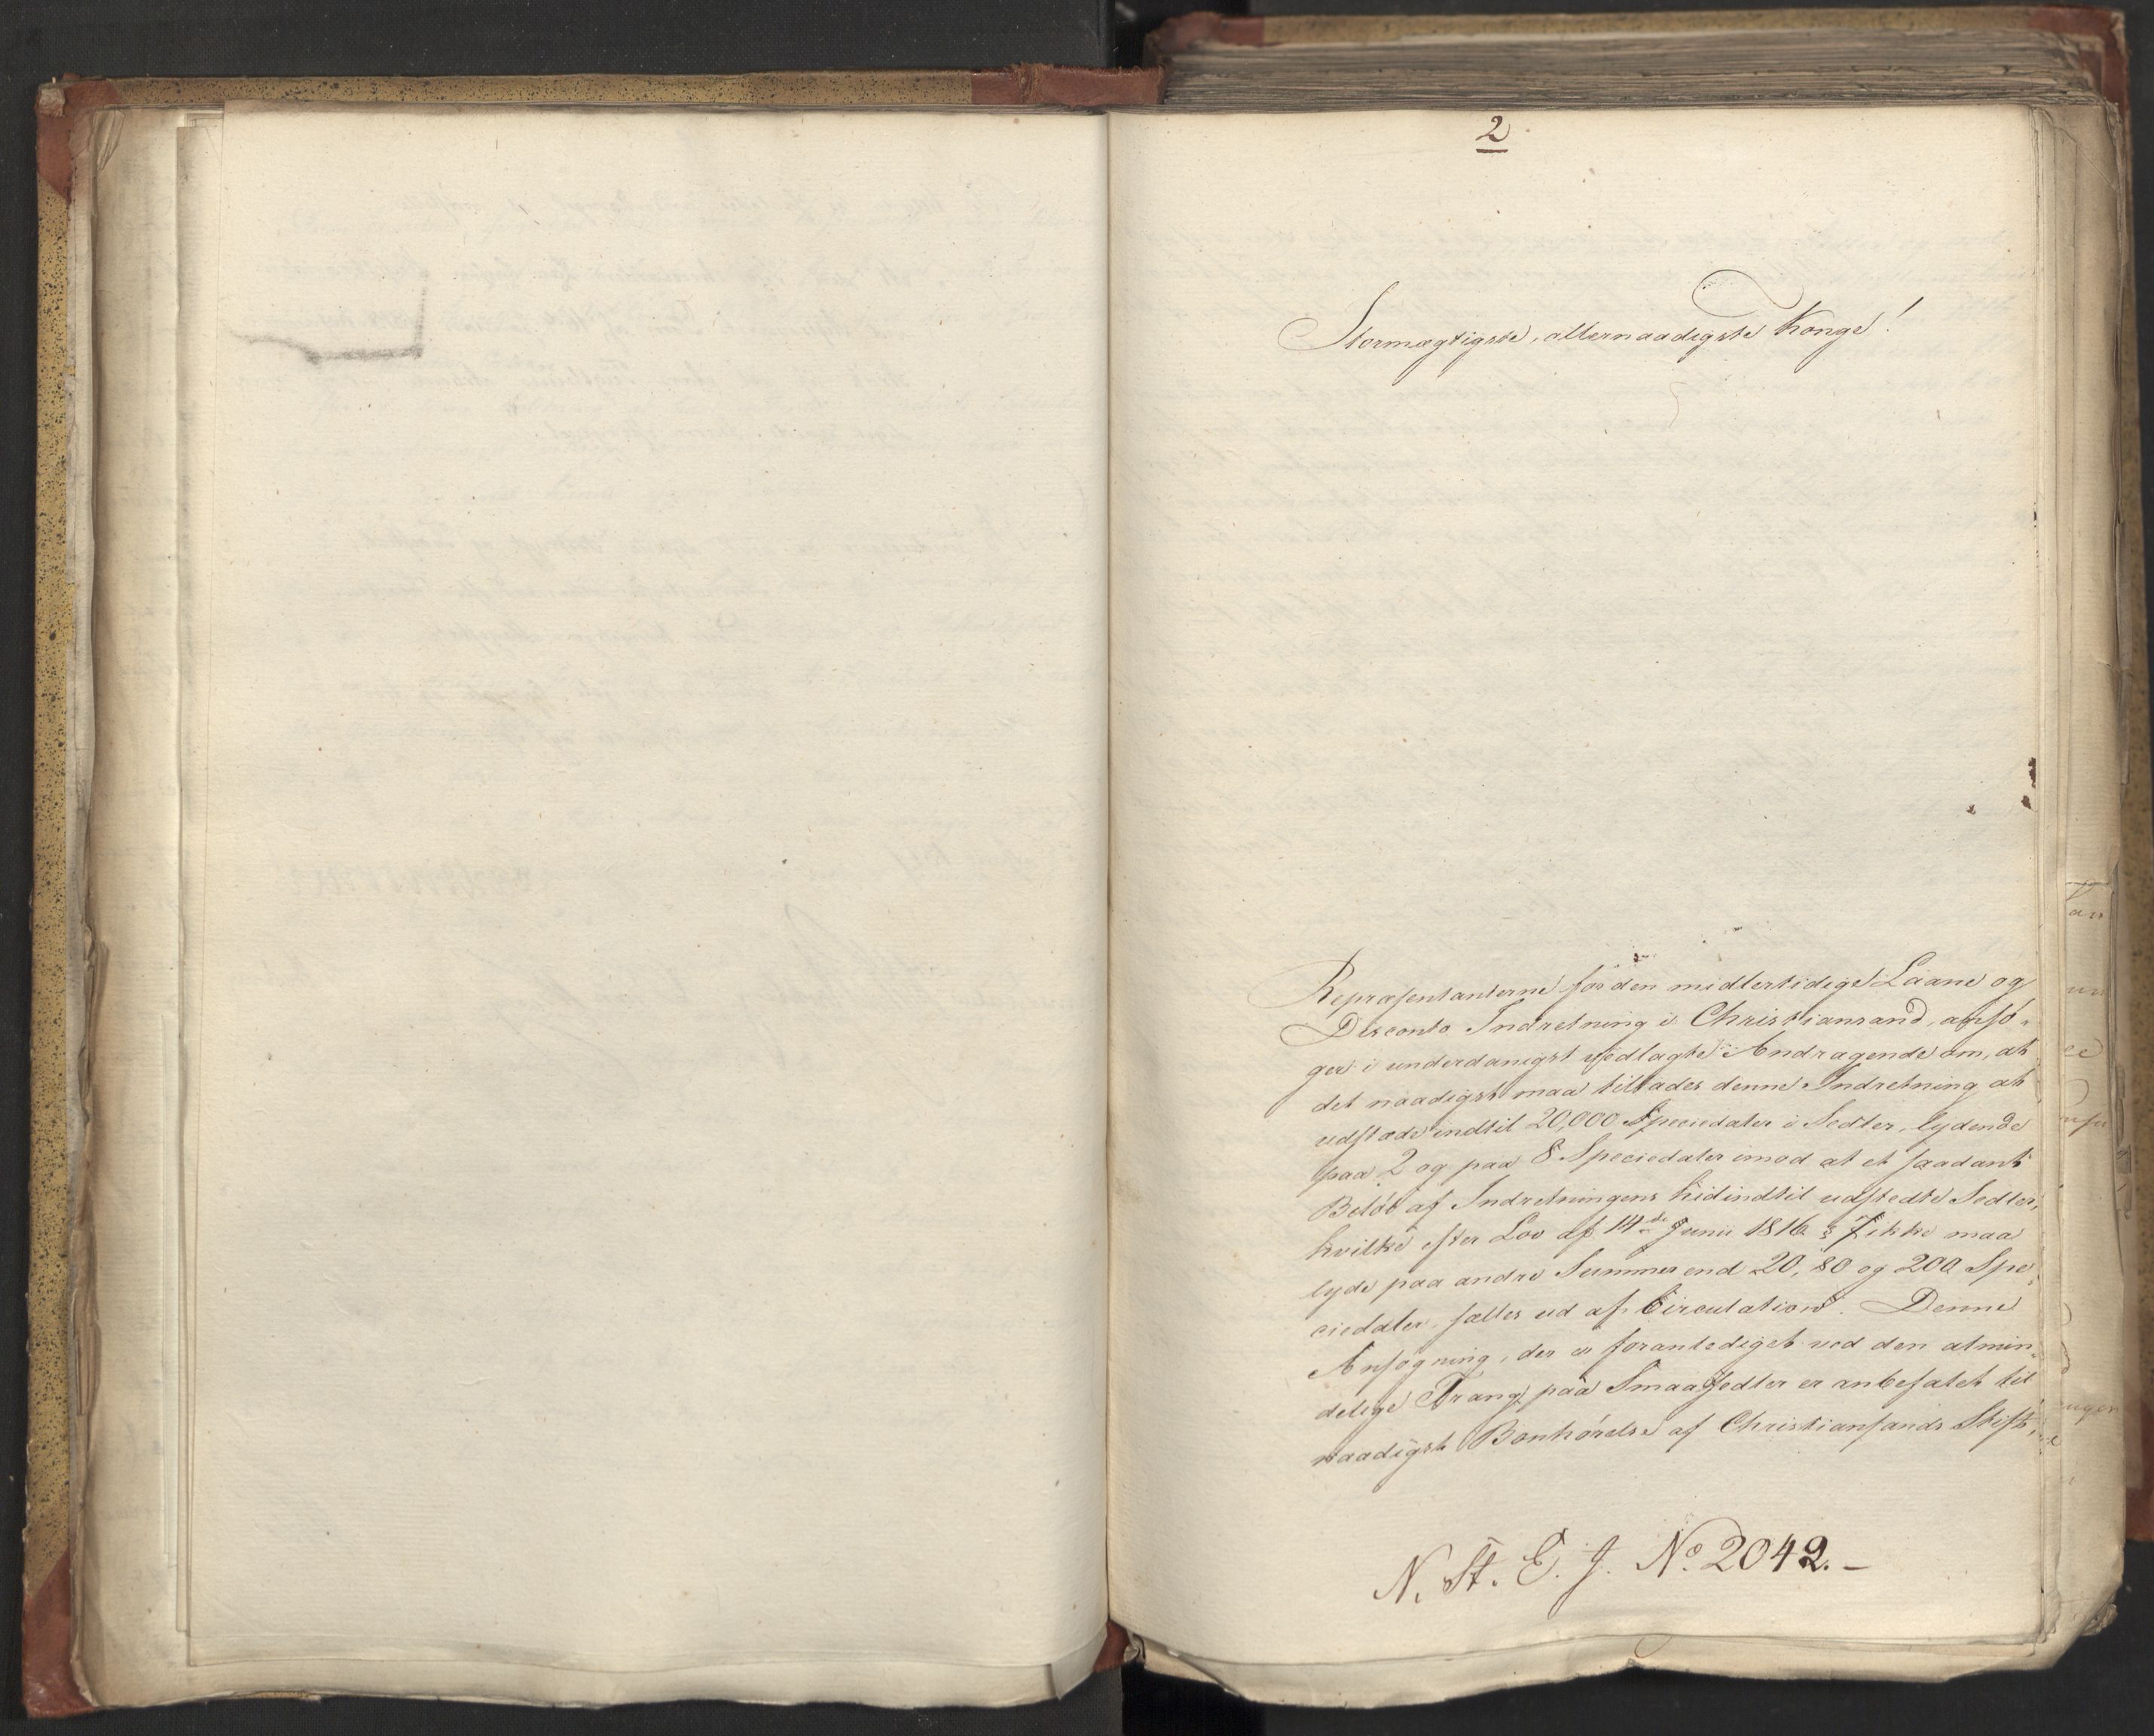 2
Stormægtigste, allernaadigste Konge!
Repræsentanterne for den midlertidige Laane og
Disconto Indretning i Christiansand, ansø-
ger i underdanigst vedlagte Andragende om, at
det naadigst maa tillades denne Indretning at
udstæde indtil 20,000 Speciedaler i Sedler, lydende
paa 2 og paa 8 Speciedaler imod at et saadant
Beløb af Indretningens hidindtil udstedte Sedler,
hvilke efter Lov af 14de Junii 1816 § 7 ikke maa
lyde paa andre Summer end 20, 80 og 200 Spe-
ciedaler, sættes ud af Circulation. Denne
Ansøgning, der er foranlediget ved den almin-
delige Trang paa Smaasedler er anbefalet til
naadigst Bønhørelse af Christiansands Stift,
N. St. E. J. No. 2042. -